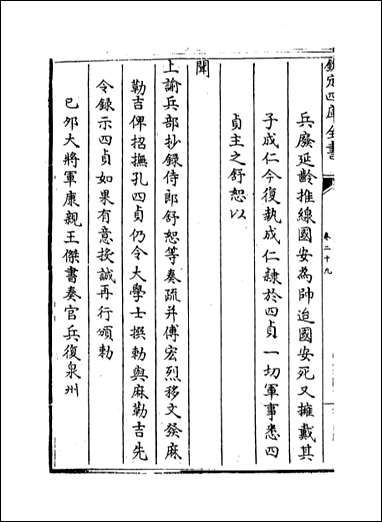 欽定四庫全書
卷二十九
兵廢延齡推線國安為帥迨國安死又擁戴其
子成仁今復執成仁隷於四貞一切軍事悉四
貞主之舒恕以
聞
上諭兵部抄録侍郎舒恕等奏疏并傅宏烈移文發麻
勒吉俾招撫孔四貞仍令大學士撰勅與麻勒吉先
令録示四貞如果有意投誠再行頒勅
己夘大將軍康親王傑書奏官兵復泉州